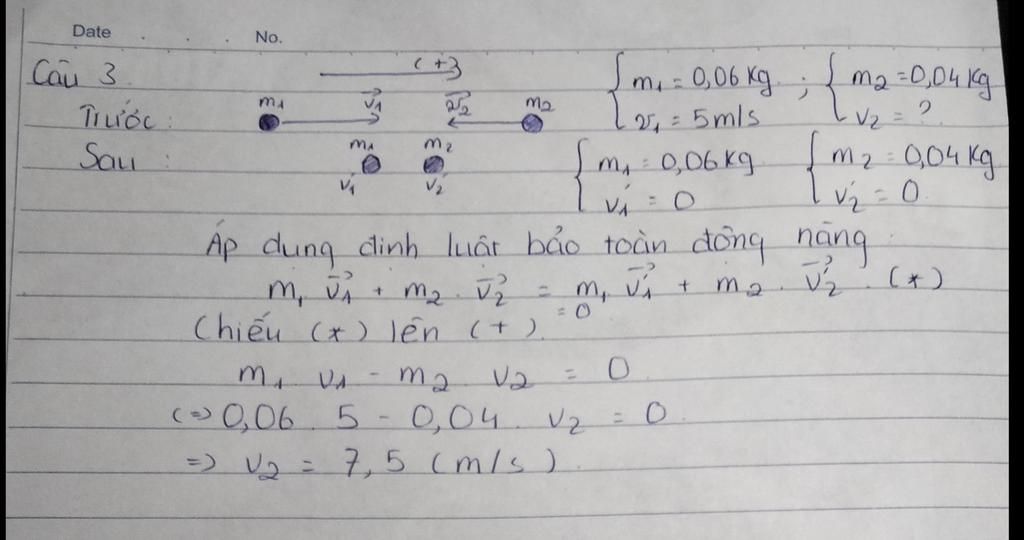 Date . . . . No.
Câu 3.
(+)
Trước: m₁ v₁⃗ v₂⃗ m₂ { m₁ = 0,06 kg ; { m₂ = 0,04 kg
v₁ = 5 m/s v₂ = ?
Sau: m₁ m₂ { m₁ = 0,06 kg { m₂ = 0,04 kg
v₁' v₂' v₁' = 0 v₂' = 0.
Áp dụng định luật bảo toàn động năng:
m₁ v₁⃗ + m₂ . v₂⃗ = m₁ v₁'⃗ + m₂ . v₂'⃗ . (*)
= 0
Chiếu (*) lên (+).
m₁ v₁ - m₂ v₂ = 0
(=> 0,06 . 5 - 0,04 . v₂ = 0.
=> v₂ = 7,5 (m/s).